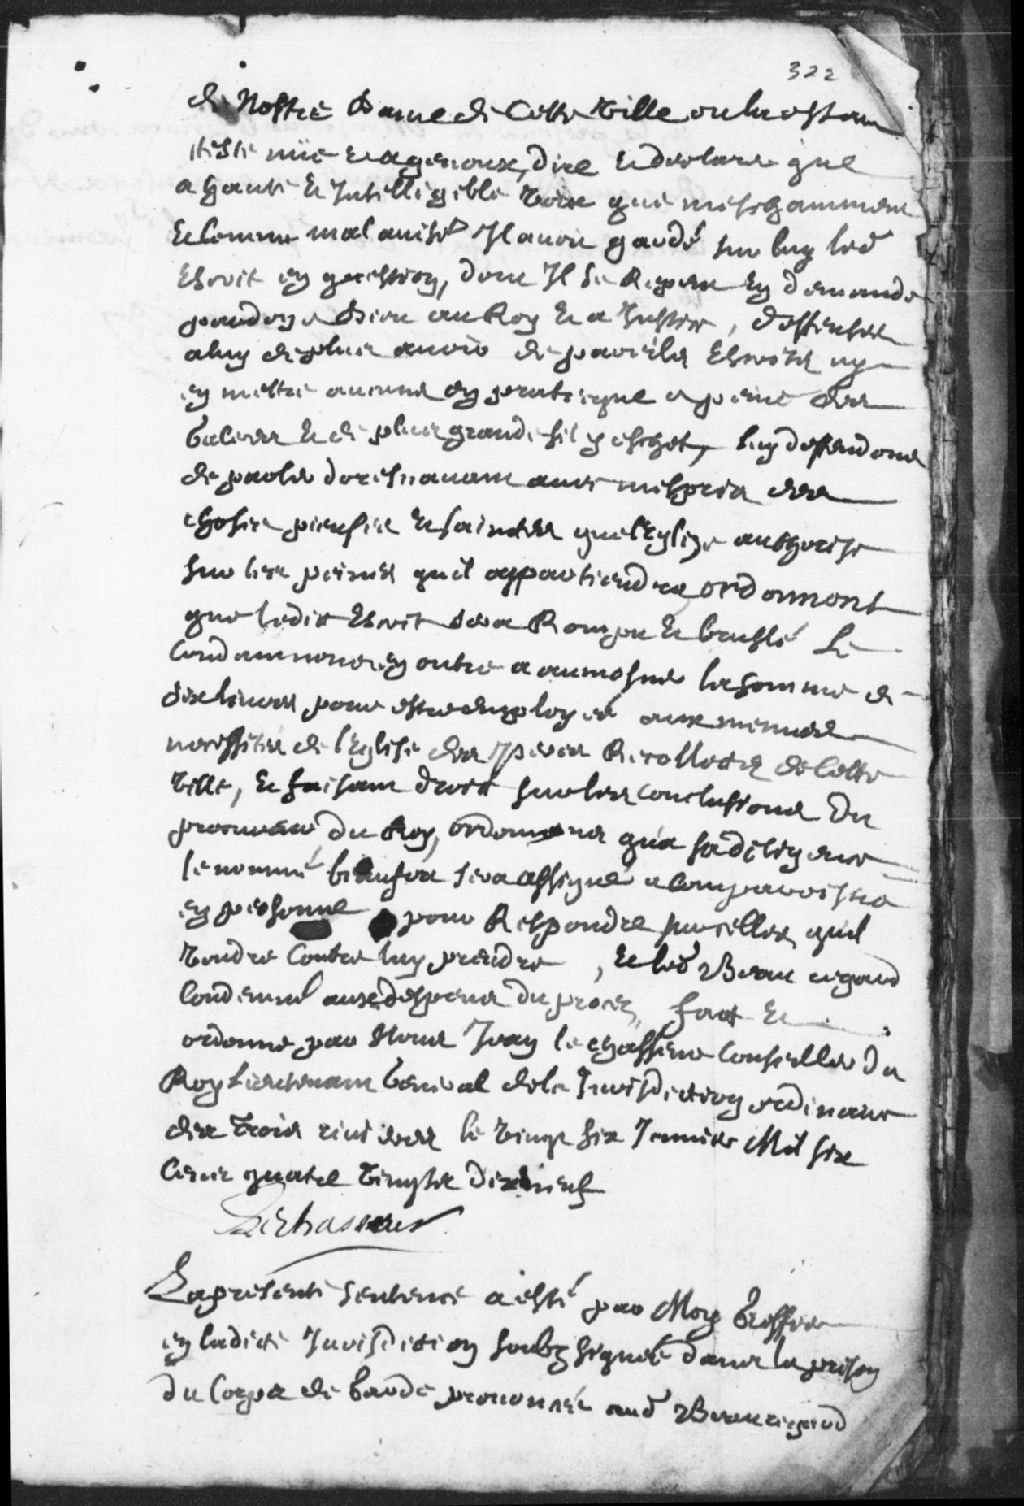 322
de Nostre Dame de Cette Ville ou luy estant
teste nüe et a genoux, dire et declarer que
a haute et Jntelligible voix que meschamment
et comme mal avisé Jl avoit gardé sur luy led
Escrit en question, dont Jl se Repent en demande
pardon a Dieu au Roy et a Justice, deffenses
a luy de plus avoir de pareils Escrits ny
en mettre aucuns en pratique a peine des
Galeres et de plus grande sil y eschet, luy deffendons
de parler doresnavant avec mespris des
choses pieuses et saintes que l'Eglize authorise
sur les peines quil appartiendra ordonnons
que ledit Escrit sera Rompu et bruslé Le
Condamnons en outre a aumosner la somme de
dix livres pour estre employés aux menues
necessités de l'Eglise des peres Recollectz de Cette
ville, et faisant droit sur les conclusions Du
procureur du Roy, ordonnons qu'a sa diligence
le nommé sera assigné a comparoistre
en personne pour Respondre sur celles quil
voudra Contre luy prendre, et led Beauregard
Condemné aux despens du procez, fait et
ordonné par Nous Jean le chasseur Conseiller du
Roy Lieutenant General de la Jurisdiction ordinaire
des Trois rivieres le vingt six Janvier Mil six
Cent quatre vingts dix neuf
Lechasseur
La presente sentence a esté par Moy Greffier
en ladite Jurisdiction soubz signé dans la prison
du Corps de Garde prononcée aud Beauregard